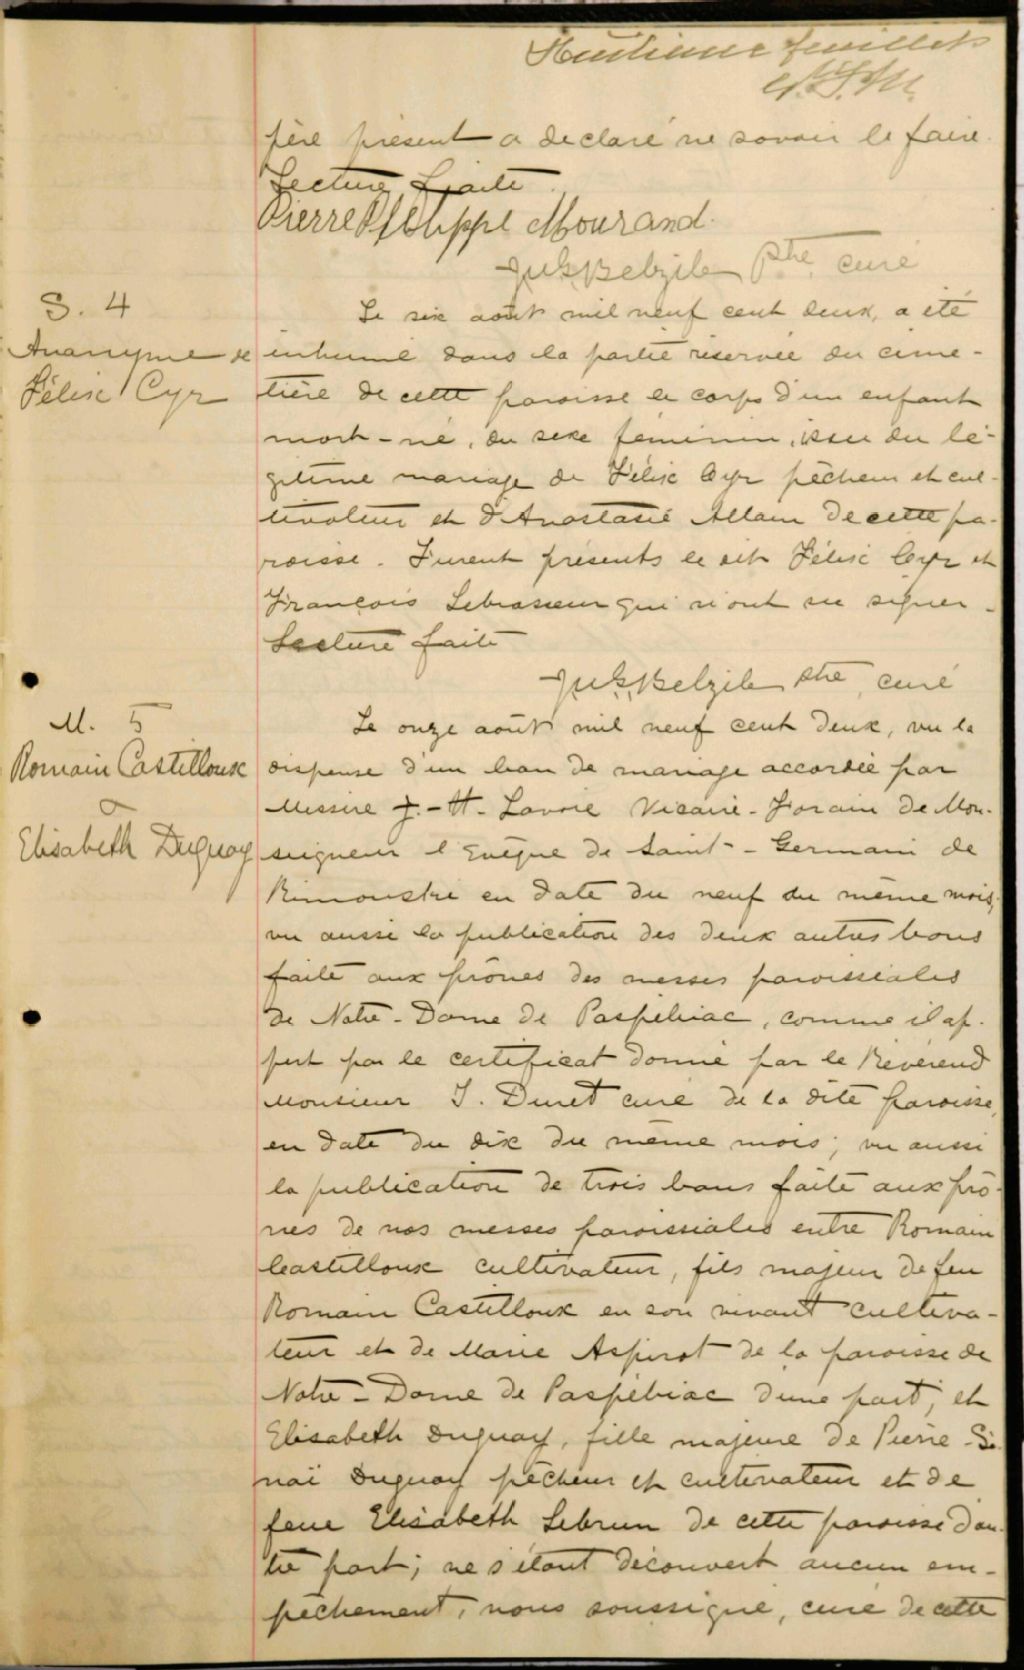 Huitième feuillet
père présent a declaré ne savoir le faire.
Lecture faite.
Pierre Philippe Mourand.
Belzile Ptre curé
S. 4
Anonyme de
Félix Cyr
Le six août mil neuf cent deux, a été
inhumé dans la partie réservée du cime-
tière de cette paroisse le corps d'un enfant
mort-né, du sexe féminin, issu du lé-
gitime mariage de Félix Cyr pêcheur et cul-
tivateur et d'Anastasie Allain de cette pa-
roisse. Furent présents le dit Félix Cyr et
François Lebrasseur qui n'ont su signer.
Lecture faite
Belzile Ptre, curé
M. 5
Romain Castilloux
&
Elisabeth Duguay
Le onze août mil neuf cent deux, vu la
dispense d'un ban de mariage accordée par
Messire J.-H. Lavoie Vicaire-Forain de Mon-
seigneur l'Evêque de Saint-Germain de
Rimouski en date du neuf du même mois,
vu aussi la publication des deux autres bans
faite aux prônes des messes paroissiales
de Notre-Dame de Paspébiac, comme il ap-
pert par le certificat donné par le Révérend
Monsieur J. Duret curé de la dite paroisse,
en date du dix du même mois; vu aussi
la publication de trois bans faite aux prô-
nes de nos messes paroissiales entre Romain
Castilloux cultivateur, fils majeur de feu
Romain Castilloux en son vivant cultiva-
teur et de Marie Aspirot de la paroisse de
Notre-Dame de Paspébiac d'une part; et
Elisabeth Duguay, fille majeure de Pierre-Si-
naï Duguay pêcheur et cultivateur et de
feue Elisabeth Lebrun de cette paroisse d'au-
tre part; ne s'étant découvert aucun em-
pêchement, nous soussigné, curé de cette